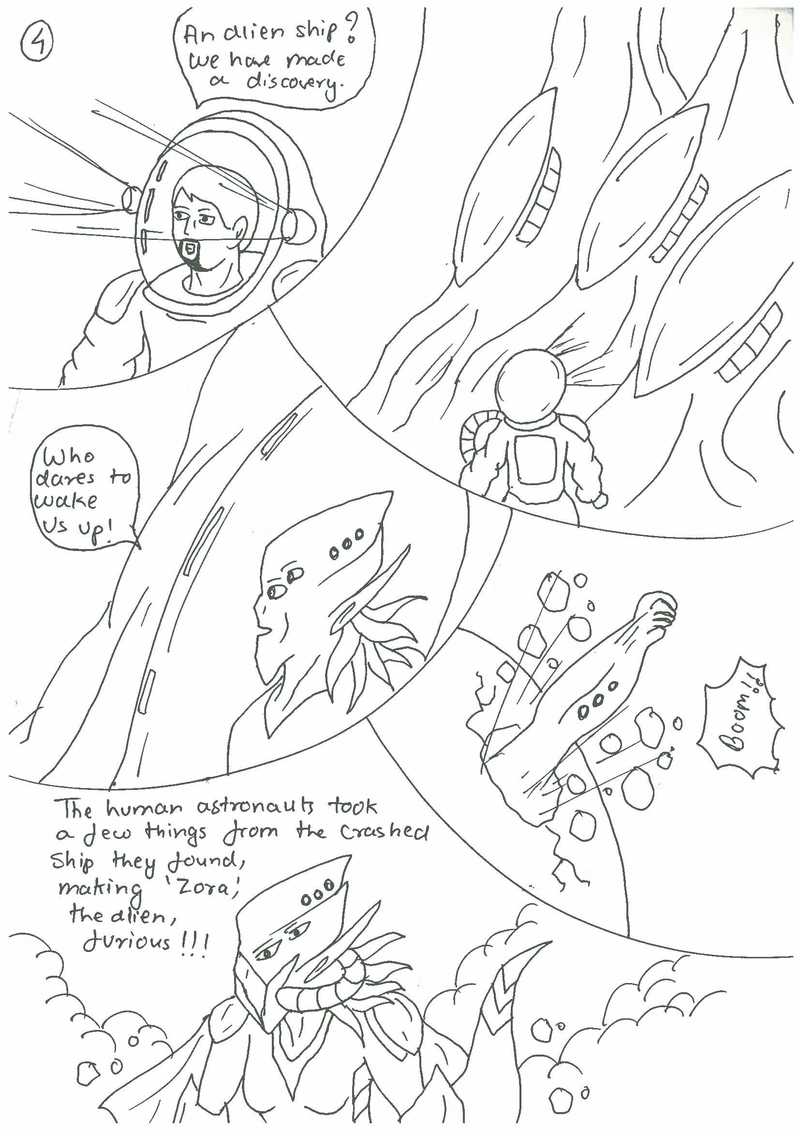 4
An alien ship?
We have made
a discovery.
Who
dares to
wake
us up!
Boom!!
The human astronauts took
a few things from the crashed
ship they found,
making 'Zora',
the alien,
furious !!!